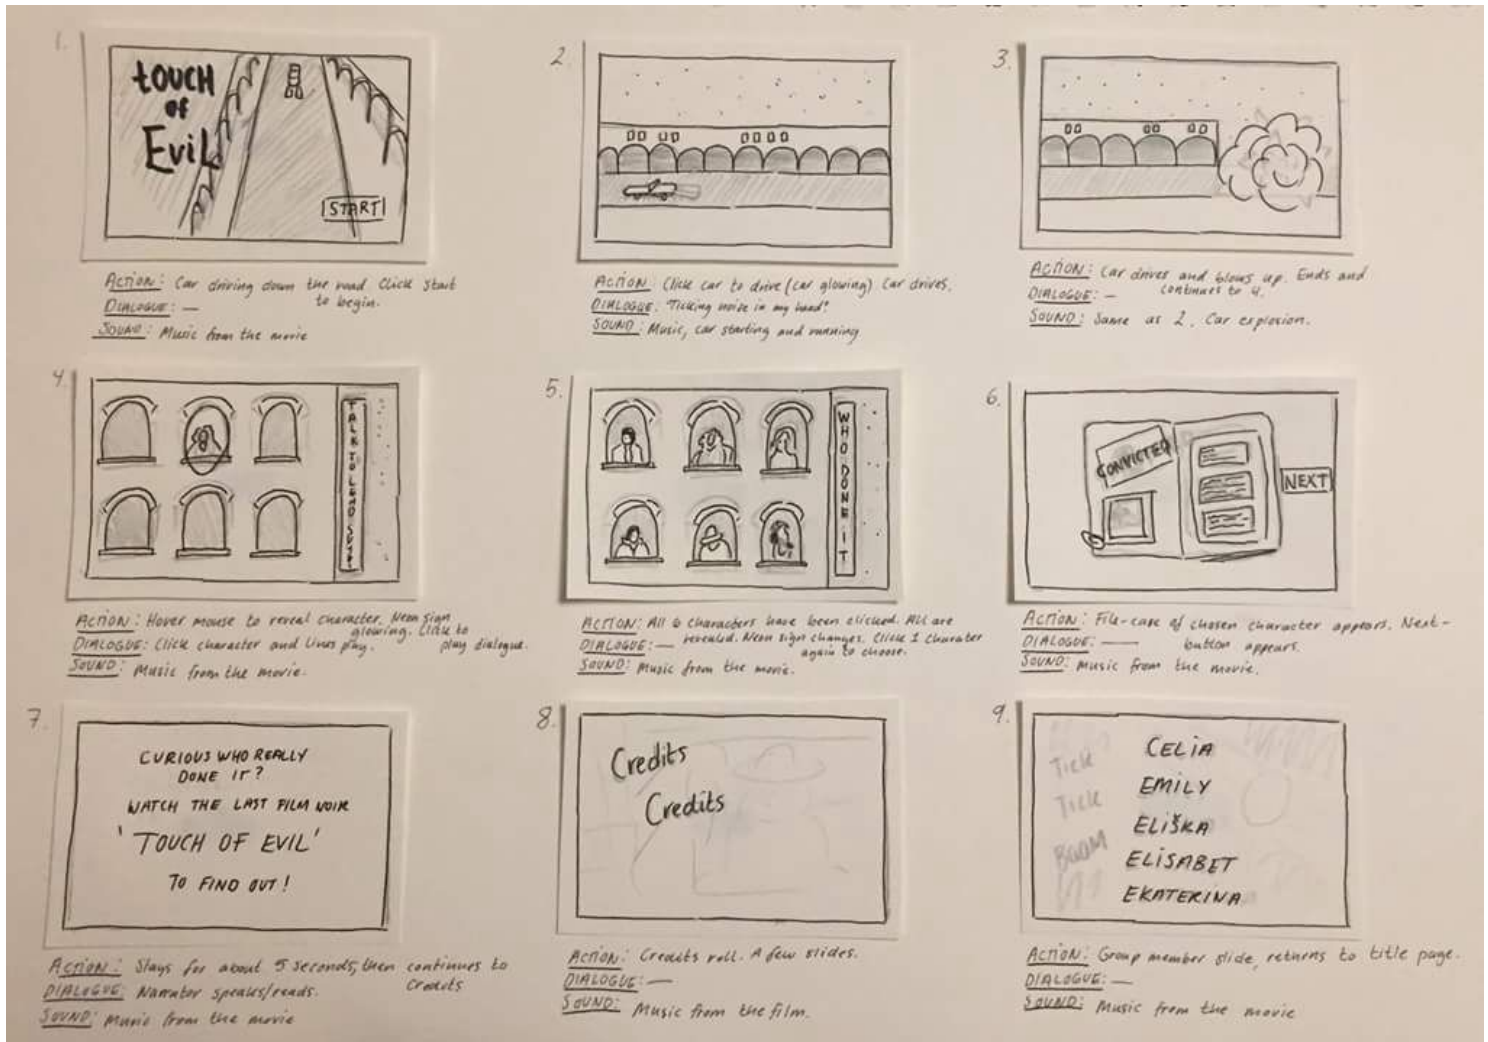 1.
TOUCH
OF
EVIL
START
ACTION: Car driving down the road Click start
to begin.
DIALOGUE: —
SOUND: Music from the movie
2.
ACTION: Click car to drive (car glowing) Car drives.
DIALOGUE: "Ticking noise in my head"
SOUND: Music, car starting and running
3.
ACTION: Car drives and blows up. Ends and
continues to 4.
DIALOGUE: —
SOUND: Same as 2. Car explosion.
4.
TALK TO
ACTION: Hover mouse to reveal character. Neon sign
glowing. Click to
play dialogue.
DIALOGUE: Click character and lines play.
SOUND: Music from the movie.
5.
WHO DONE IT
ACTION: All 6 characters have been clicked. All are
revealed. Neon sign changes. Click 1 charater
again to choose.
DIALOGUE: —
SOUND: Music from the movie.
6.
CONVICTED
NEXT
ACTION: File-case of chosen character appears. Next-
button appears.
DIALOGUE: —
SOUND: Music from the movie.
7.
CURIOUS WHO REALLY
DONE IT?
WATCH THE LAST FILM NOIR
'TOUCH OF EVIL'
TO FIND OUT!
ACTION: Stays for about 5 seconds, then continues to
Credits
DIALOGUE: Narrator speaks/reads.
SOUND: Music from the movie
8.
Credits
Credits
ACTION: Credits roll. A few slides.
DIALOGUE: —
SOUND: Music from the film.
9.
Tick
Tick
BOOM
CELIA
EMILY
ELIŠKA
ELISABET
EKATERINA
ACTION: Group member slide, returns to title page.
DIALOGUE: —
SOUND: Music from the movie